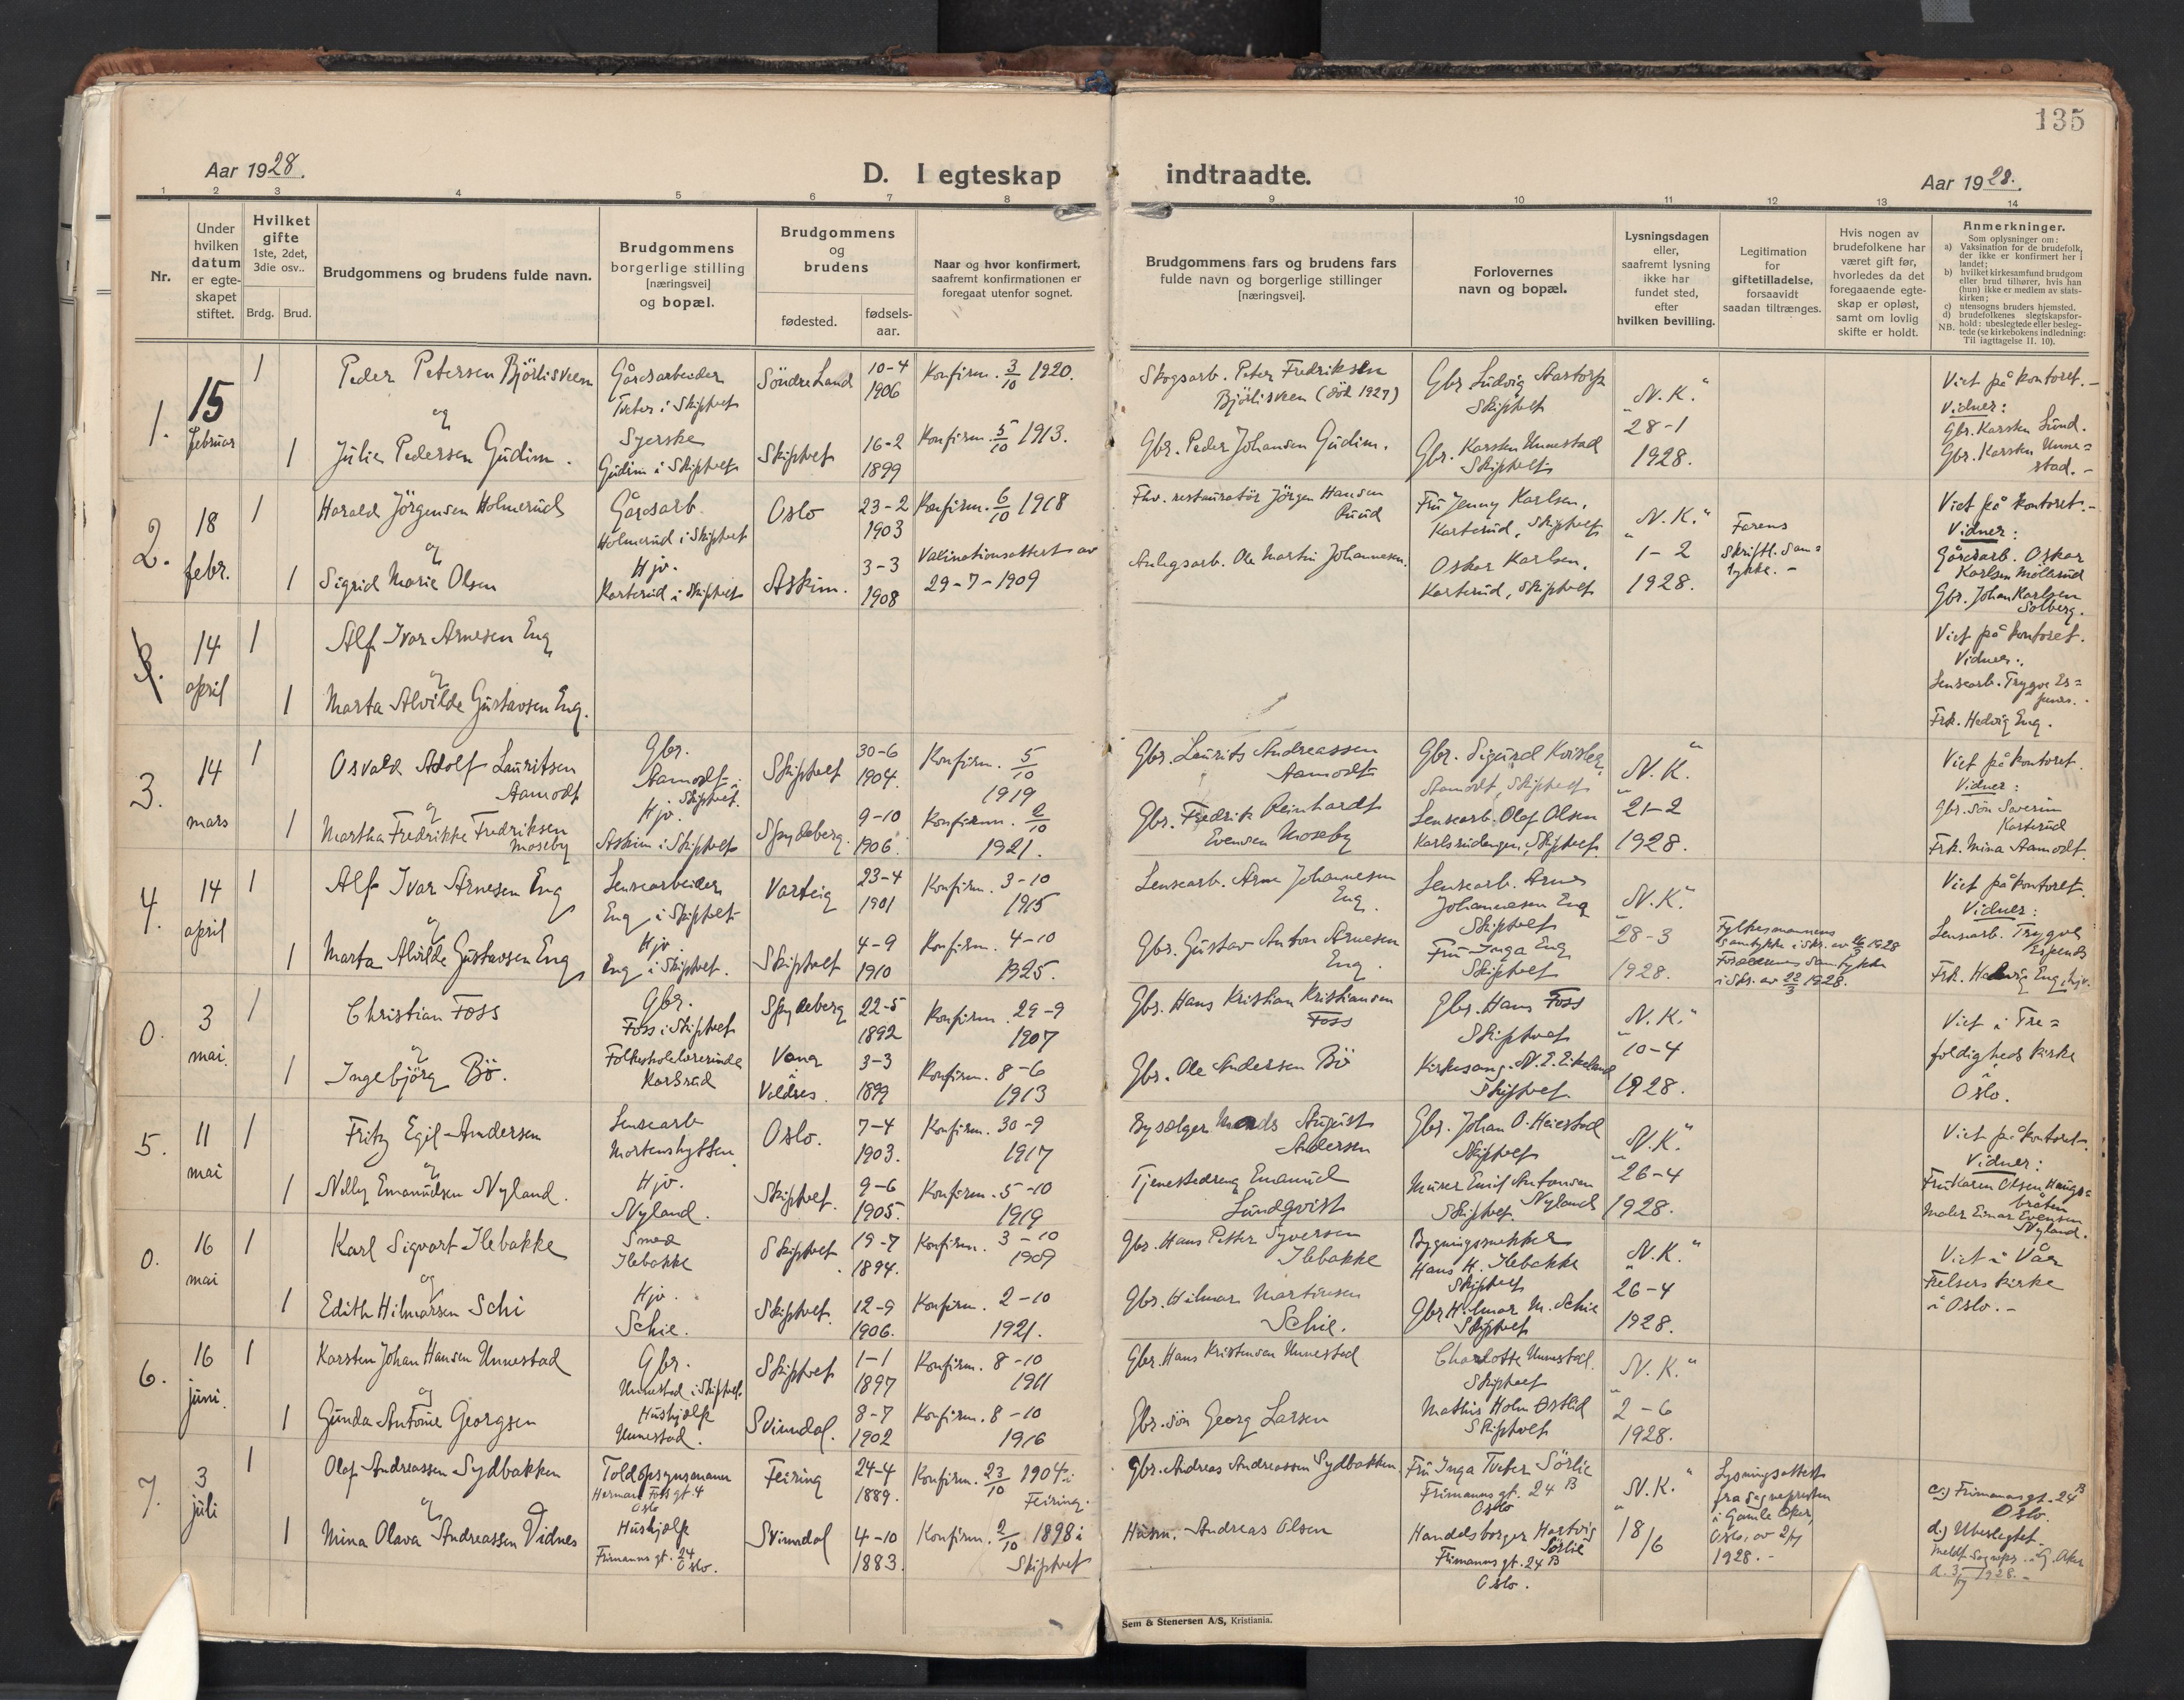 135
Aar 1928.
D. I egteskap indtraadte.
Aar 1928.
1 2 3 4 5 6 7 8 9 10 11 12 13 14
Nr.
Under hvilken datum er egte-skapet stiftet.
Hvilket gifte 1ste, 2det, 3die osv..
Brdg. Brud.
Brudgommens og brudens fulde navn.
Brudgommens borgerlige stilling [næringsvei] og bopæl.
Brudgommens og brudens
fødested.
fødsels-aar.
Naar og hvor konfirmert, saafremt konfirmationen er foregaat utenfor sognet.
Brudgommens fars og brudens fars fulde navn og borgerlige stillinger [næringsvei].
Forlovernes navn og bopæl.
Lysningsdagen eller, saafremt lysning ikke har fundet sted, efter hvilken bevilling.
Legitimation for giftetilladelse, forsaavidt saadan tiltrænges.
Hvis nogen av brudefolkene har været gift før, hvorledes da det foregaaende egte-skap er opløst, samt om lovlig skifte er holdt.
Anmerkninger.
Som oplysninger om:
a) Vaksination for de brudefolk, der ikke er konfirmert her i landet;
b) hvilket kirkesamfund brudgom eller brud tilhører, hvis han (hun) ikke er medlem av stats-kirken;
c) utensogns bruders hjemsted.
d) brudefolkenes slegtskapsfor-hold: ubeslegtede eller besleg-
NB. tede (se kirkebokens indledning: Til iagttagelse II. 10).
1. 15 februar
1 Peder Petersen Björlisveen
Gårdsarbeider Tveter i Skiptvet
Söndre Land 10-4 1906
Konfirm. 3/10 1920.
Skogsarb. Peter Fredriksen Björlisveen (död 1927)
Gbr Ludvig Aastorp Skiptvet
"N.K." 28-1 1928.
Viet på kontoret.-
Vidner:
Gbr. Karsten Lund.
Gbr. Karsten Unne=
stad.-
og
1 Julie Pedersen Gudim.
Syerske Gudim i Skiptvet
Skiptvet 16-2 1899
Konfirm. 5/10 1913.
Gbr. Peder Johansen Gudim.
Gbr. Karsten Unnestad Skiptvet
2. 18 febr.
1 Harald Jörgensen Holmerud
Gårdsarb. Holmerud i Skiptvet
Oslo 23-2 1903
Konfirm. 6/10 1918
Fhv. restauratör Jörgen Hansen Ruud
Fru Jenny Karlsen, Karterud, Skiptvet
"N.K." 1-2 1928.
Farens skriftl. Sam=
tykke.-
Viet på kontoret.-
Vidner:
Gårdsarb. Oskar
Karlsen Möllerud
Gbr. Johan Karlsen
Solberg.
og
1 Sigrid Marie Olsen
Hjv. Karterud i Skiptvet
Askim. 3-3 1908
Vakinationsattest av 29-7-1909
Anlegsarb. Ole Martin Johannesen.
Oskar Karlsen, Karterud, Skiptvet
3. 14 april
1 Alf Ivar Arnesen Eng
og
1 Marta Alvilde Gustavsen Eng.
Viet på kontoret.
Vidner:
Lensearb. Trygve Es=
Frk. Hedvig Eng.
3. 14 mars
1 Osvald Adolf Lauritsen Aamodt
Gbr. Aamodt i Skiptvet.
Skiptvet 30-6 1904.
Konfirm. 5/10 1919
Gbr. Laurits Andreassen Aamodt
Gbr. Sigurd Aamodt, Skiptvet
"N.K." 21-2 1928.
Viet på kontoret.
Vidner:
Gbr. sön Severin
Karterud
Frk. Mina Aamodt.
og
1 Martha Fredrikke Fredriksen Moseby
Hjv. Askim i Skiptvet
Spydeberg. 9-10 1906.
Konfirm. 2/10 1921.
Gbr. Fredrik Reinhardt Evensen Moseby
Lensearb. Olaf Olsen Karlsrudengen, Skiptvet.
4. 14 april
1 Alf Ivar Arnesen Eng
Lensearbeider Eng i Skiptvet
Varteig 23-4 1901
Konfirm. 3-10 1915
Lensearb. Arne Johannesen Eng.
Lensearb. Arne Johannesen Eng Skiptvet
"N.K." 28-3 1928.
Fylkesmannens
samtykke i skr. av 26/3 1928
Foreldrenes samtykke
i skr. av 22/3 1928.
Viet på kontoret.
Vidner:
Lensearb. Trygve
Espenes
Frk. Hedvig Eng, hjv.
og
1 Marta Alvilde Gustavsen Eng
Hjv. Eng i Skiptvet.
Skiptvet 4-9 1910
Konfirm. 4-10 1925.
Gbr. Gustav Anton Arnesen Eng.
Fru Inga Eng Skiptvet
0. 3 mai.
1 Christian Foss
Gbr. Foss i Skiptvet
Spydeberg 22-5 1892
Konfirm. 29-9 1907
Gbr. Hans Kristian Kristiansen Foss
Gbr. Hans Foss Skiptvet
"N.K." 10-4 1928.
Viet i Tre=
foldigheds kirke
Oslo.
og
1 Ingebjörg Bö.
Folkeskolelærerinde Karlsrud
Vang i Valdres. 3-3 1899
Konfirm. 8-6 1913
Gbr. Ole Andersen Bö
Kirkesang. N.E. Eikeland Skiptvet.
5. 11 mai
1 Fritz Egil Andersen
Lensearb Mortenshytten.
Oslo. 7-4 1903.
Konfirm. 30-9 1917
Bysælger Mads August Andersen
Gbr. Johan O. Heiestad Skiptvet
"N.K." 26-4 1928.
Viet på kontoret.
Vidner:
Fru Karen Olsen Haugs=
bråten
Maler Einar Evensen
Nyland.
og
1 Nelly Emanuelsen Nyland.
Hjv. Nyland.
Skiptvet. 9-6 1905.
Konfirm. 5-10 1919
Tjenestedreng Emanuel Lundqvist
Murer Emil Antonsen Nyland Skiptvet.
0. 16 mai
1 Karl Sigvart Ilebakke
Smed Ilebakke
Skiptvet 19-7 1894.
Konfirm. 3-10 1909
Gbr. Hans Petter Syversen Ilebakke
Bygningssnekker Hans H. Ilebakke Skiptvet
"N.K." 26-4 1928.
Viet i Vår
Frelsers kirke
i Oslo.-
og
1 Edith Hilmarsen Schi
Hjv. Schie.
Skiptvet. 12-9 1906.
Konfirm. 2-10 1921.
Gbr. Hilmar Martinsen Schie.
Gbr Hilmar M. Schie Skiptvet
6. 16 juni.
1 Karsten Johan Hansen Unnestad
Gbr. Unnestad i Skiptvet.
Skiptvet 1-1 1897
Konfirm. 8-10 1911
Gbr. Hans Kristensen Unnestad
Charlotte Unnestad. Skiptvet
"N.K." 2-6 1928.
og
1 Gunda Antonie Georgsen
Hushjælp Unnestad.
Svinndal. 8-7 1902
Konfirm. 8-10 1916
Gbr. sön Georg Larsen
Mathis Holm Østlid Skiptvet
7. 3 juli
1 Olaf Andreassen Sydbakken
Toldopsynsmann Herman Foss gt. 4 Oslo
Feiring 24-4 1889.
Konfirm. 23/10 1904 i Feiring.
Gbr. Andreas Andreassen Sydbakken
Fru Inga Tveter Sörlie Frimanns gt. 24 B Oslo
"N.K." 18/6
Lysningsattest
fra sognepresten
i Gamle Aker,
Oslo, av 2/7
1928.-
c.) Frimanns gt. 24 B
Oslo.
d.) Ubeslegtet.
Meldt Sognepr. i G. Aker
d. 3/7 1928.-
og
1 Mina Olava Andreassen Vidnes
Hushjælp Frimanns gt. 24 Oslo.
Svinndal 4-10 1883.
Konfirm. 2/10 1898 i Skiptvet
Husm. Andreas Olsen
Handelsborger Hartvig Sörlie Frimanns gt. 24 B Oslo.
Sem & Stenersen A/S, Kristiania.